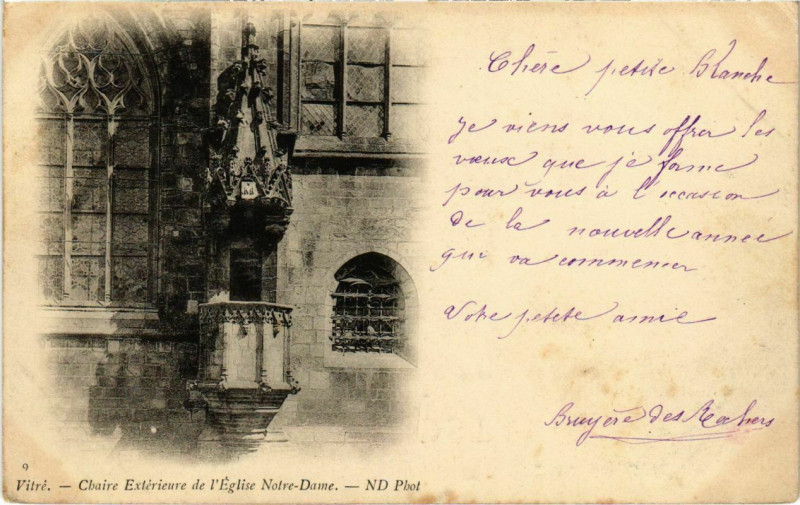 Chère petite Blanche
Je viens vous offrir les
vœux que je forme
pour vous à l'occasion
de la nouvelle année
qui va commencer
Votre petite amie
Bruyère des Rochers
9
Vitré. — Chaire Extérieure de l'Église Notre-Dame. — ND Phot